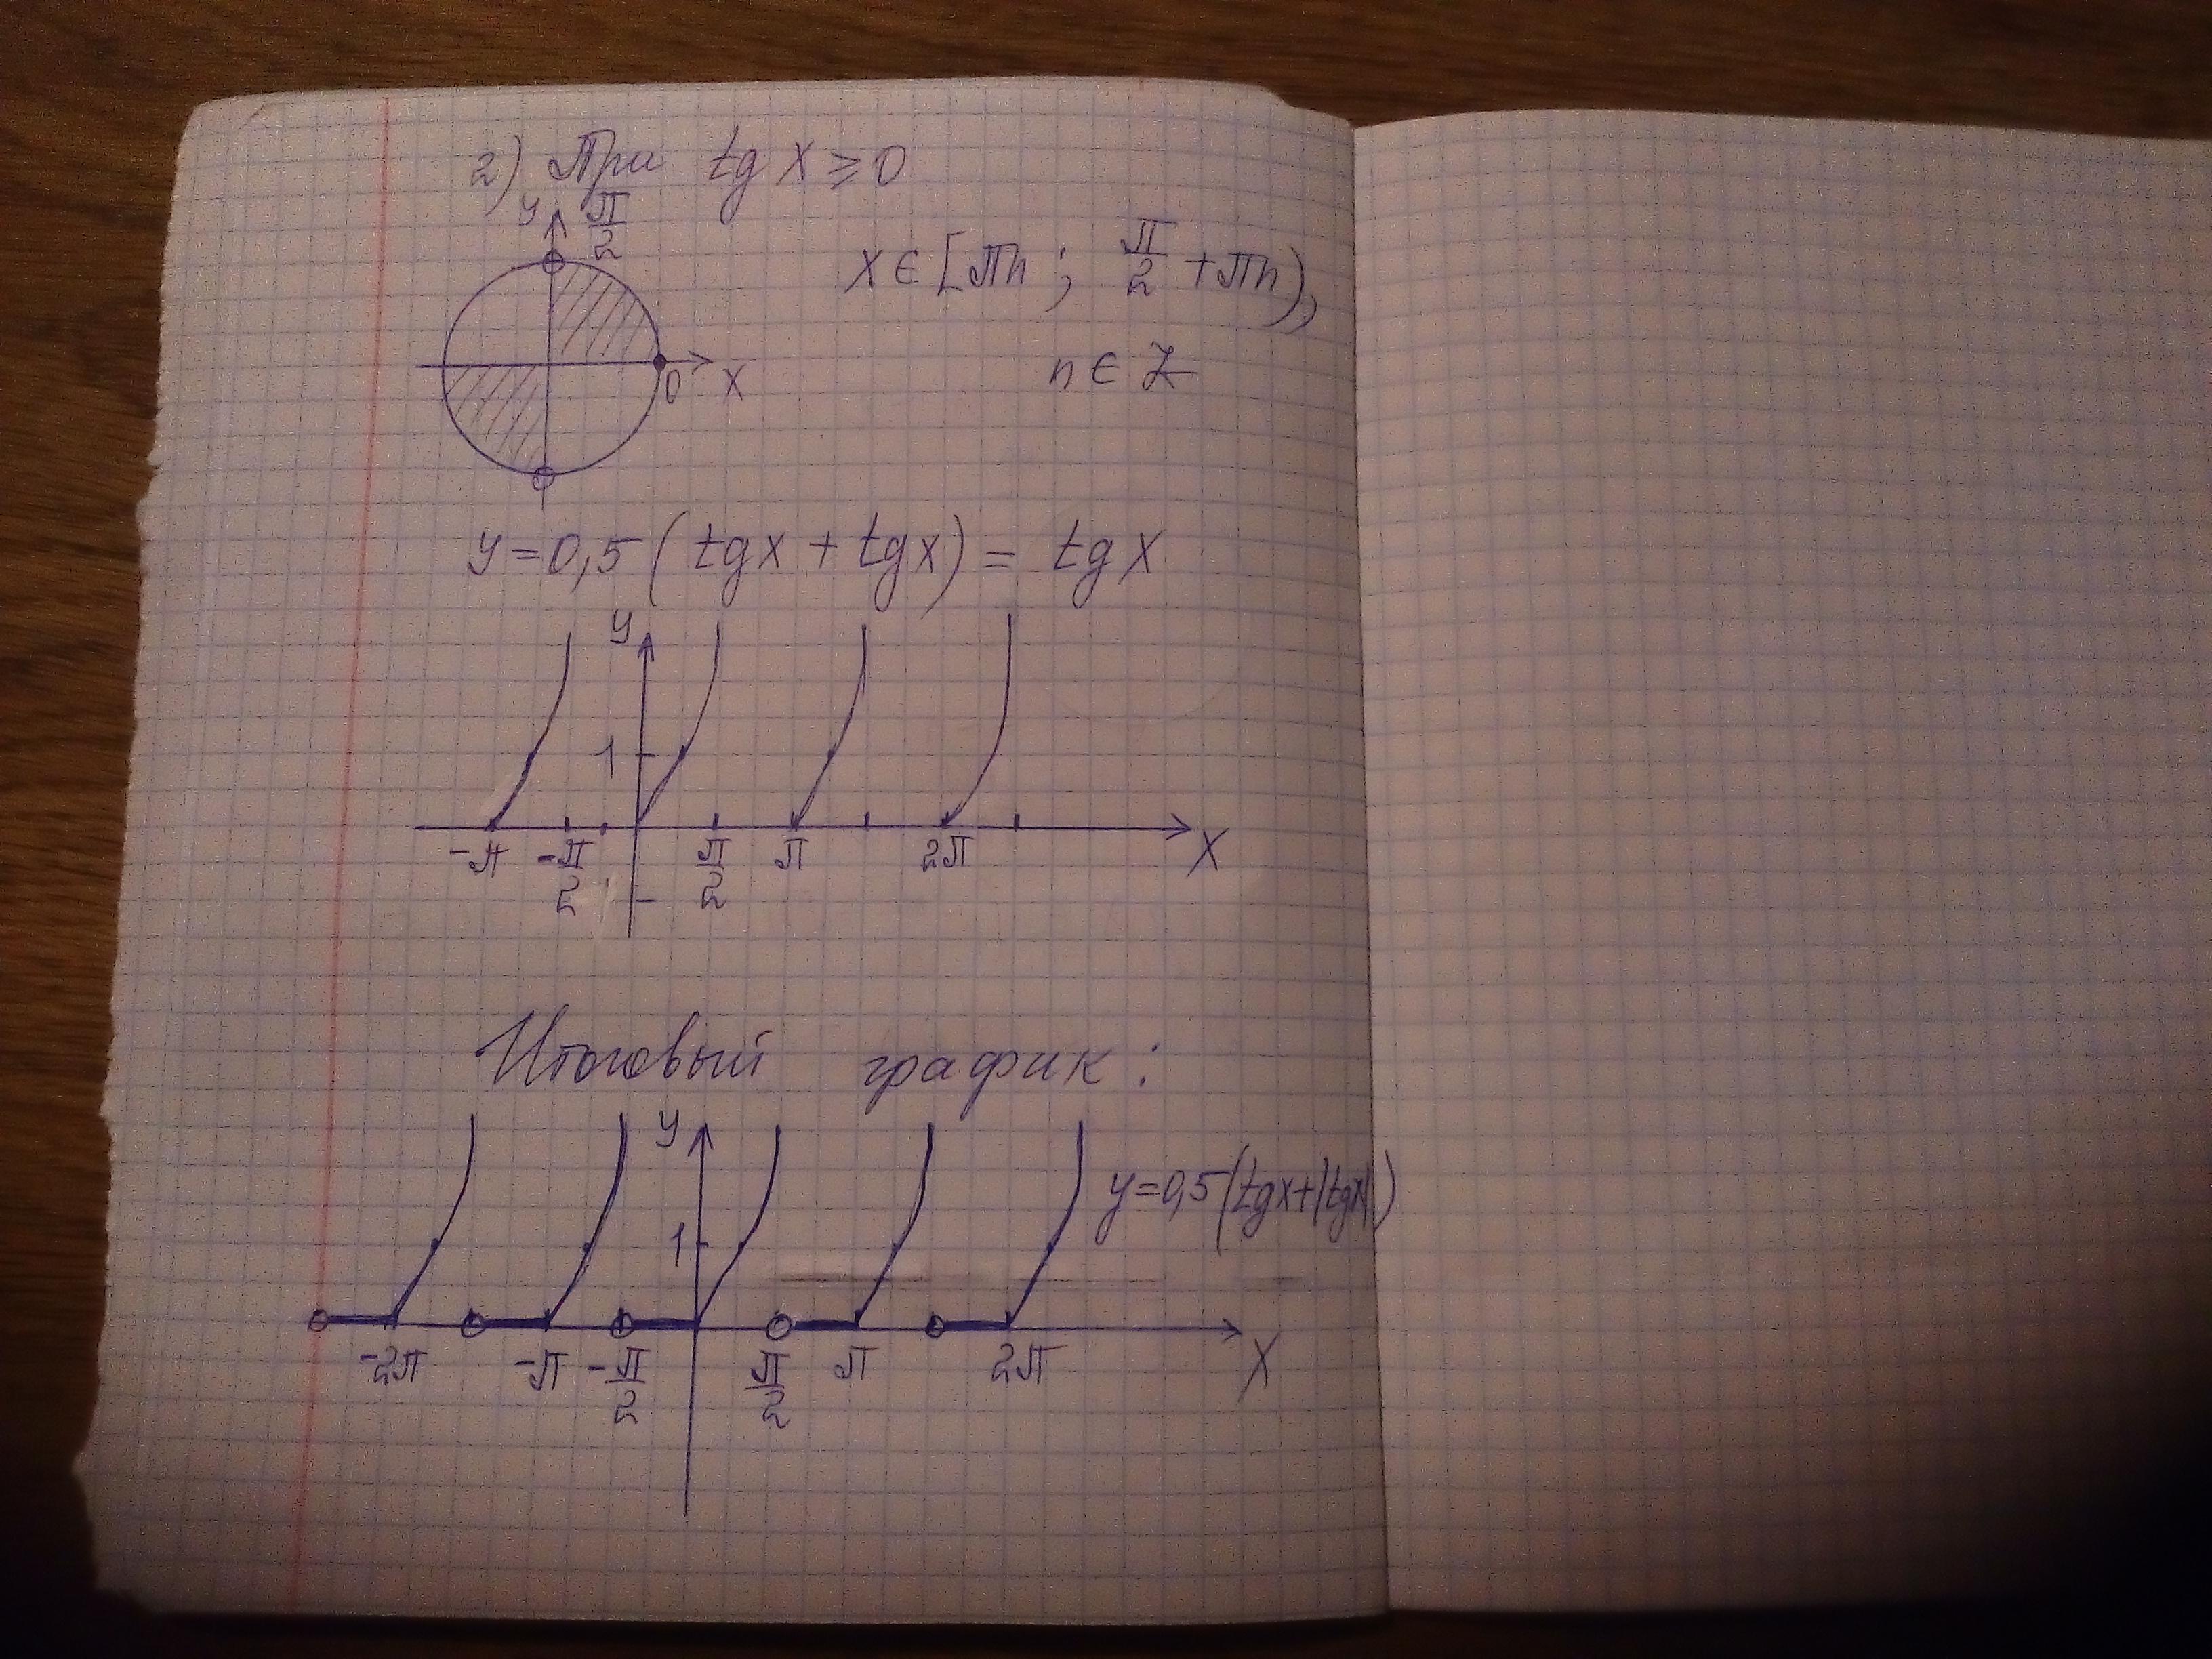 2) При tg x ≥ 0
y π/2
x ∈ [πn ; π/2 + πn),
0 x
n ∈ Z
y = 0,5 ( tg x + tg x) = tg x
y
1
-π -π/2 π/2 π 2π x
Итоговый график:
y
y = 0,5 (tg x + |tg x|)
1
-2π -π -π/2 π/2 π 2π x